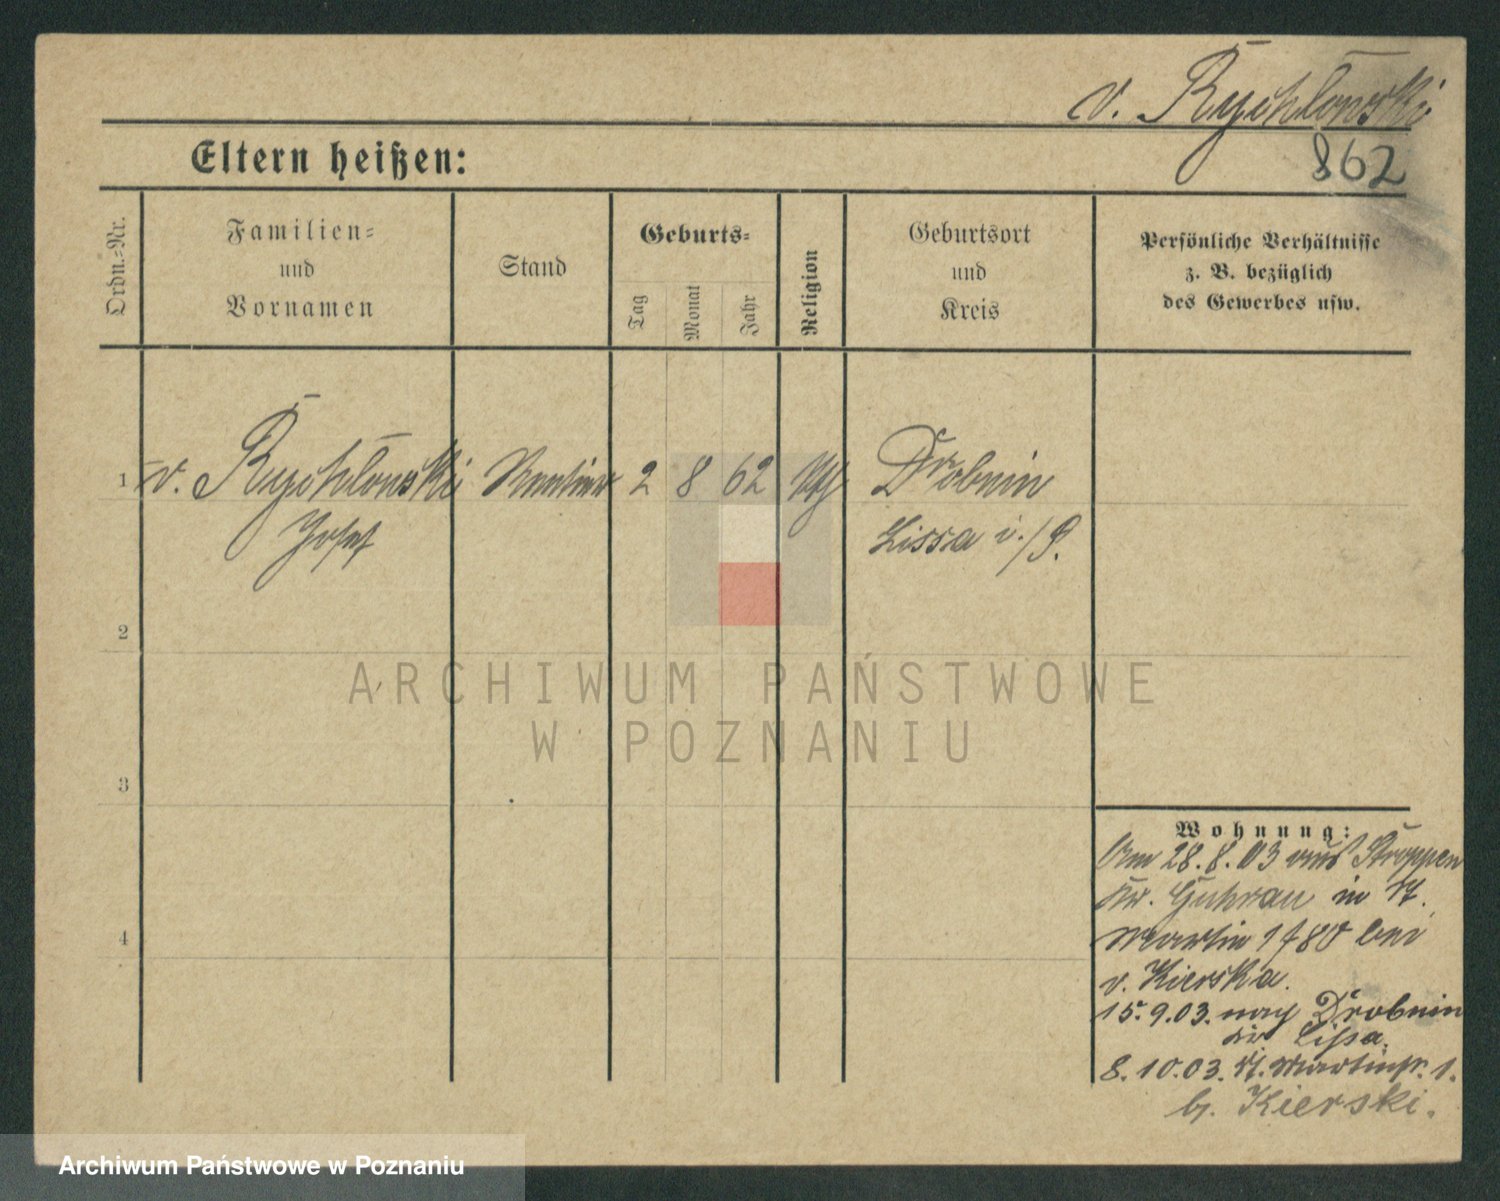 v. Rychłowski
862
Eltern heißen:
Ordn.-Nr.
Familien-
und
Vornamen
Stand
Geburts-
Tag
Monat
Jahr
Religion
Geburtsort
und
Kreis
Persönliche Verhältnisse
z. B. bezüglich
des Gewerbes usw.
1 v. Rychłowski Rentier 2 8 62 Drobnin
Josef Lissa i./P.
2
3
4
Wohnung:
Am 28.8.03 aus Stroppen
Kr. Guhrau in St.
Martin 1 bei
v. Kierska.
15.9.03. nach Drobnin
Kr Lissa.
8.10.03. St. Martinstr. 1.
b. Kierski.
ARCHIWUM PAŃSTWOWE
W POZNANIU
Archiwum Państwowe w Poznaniu